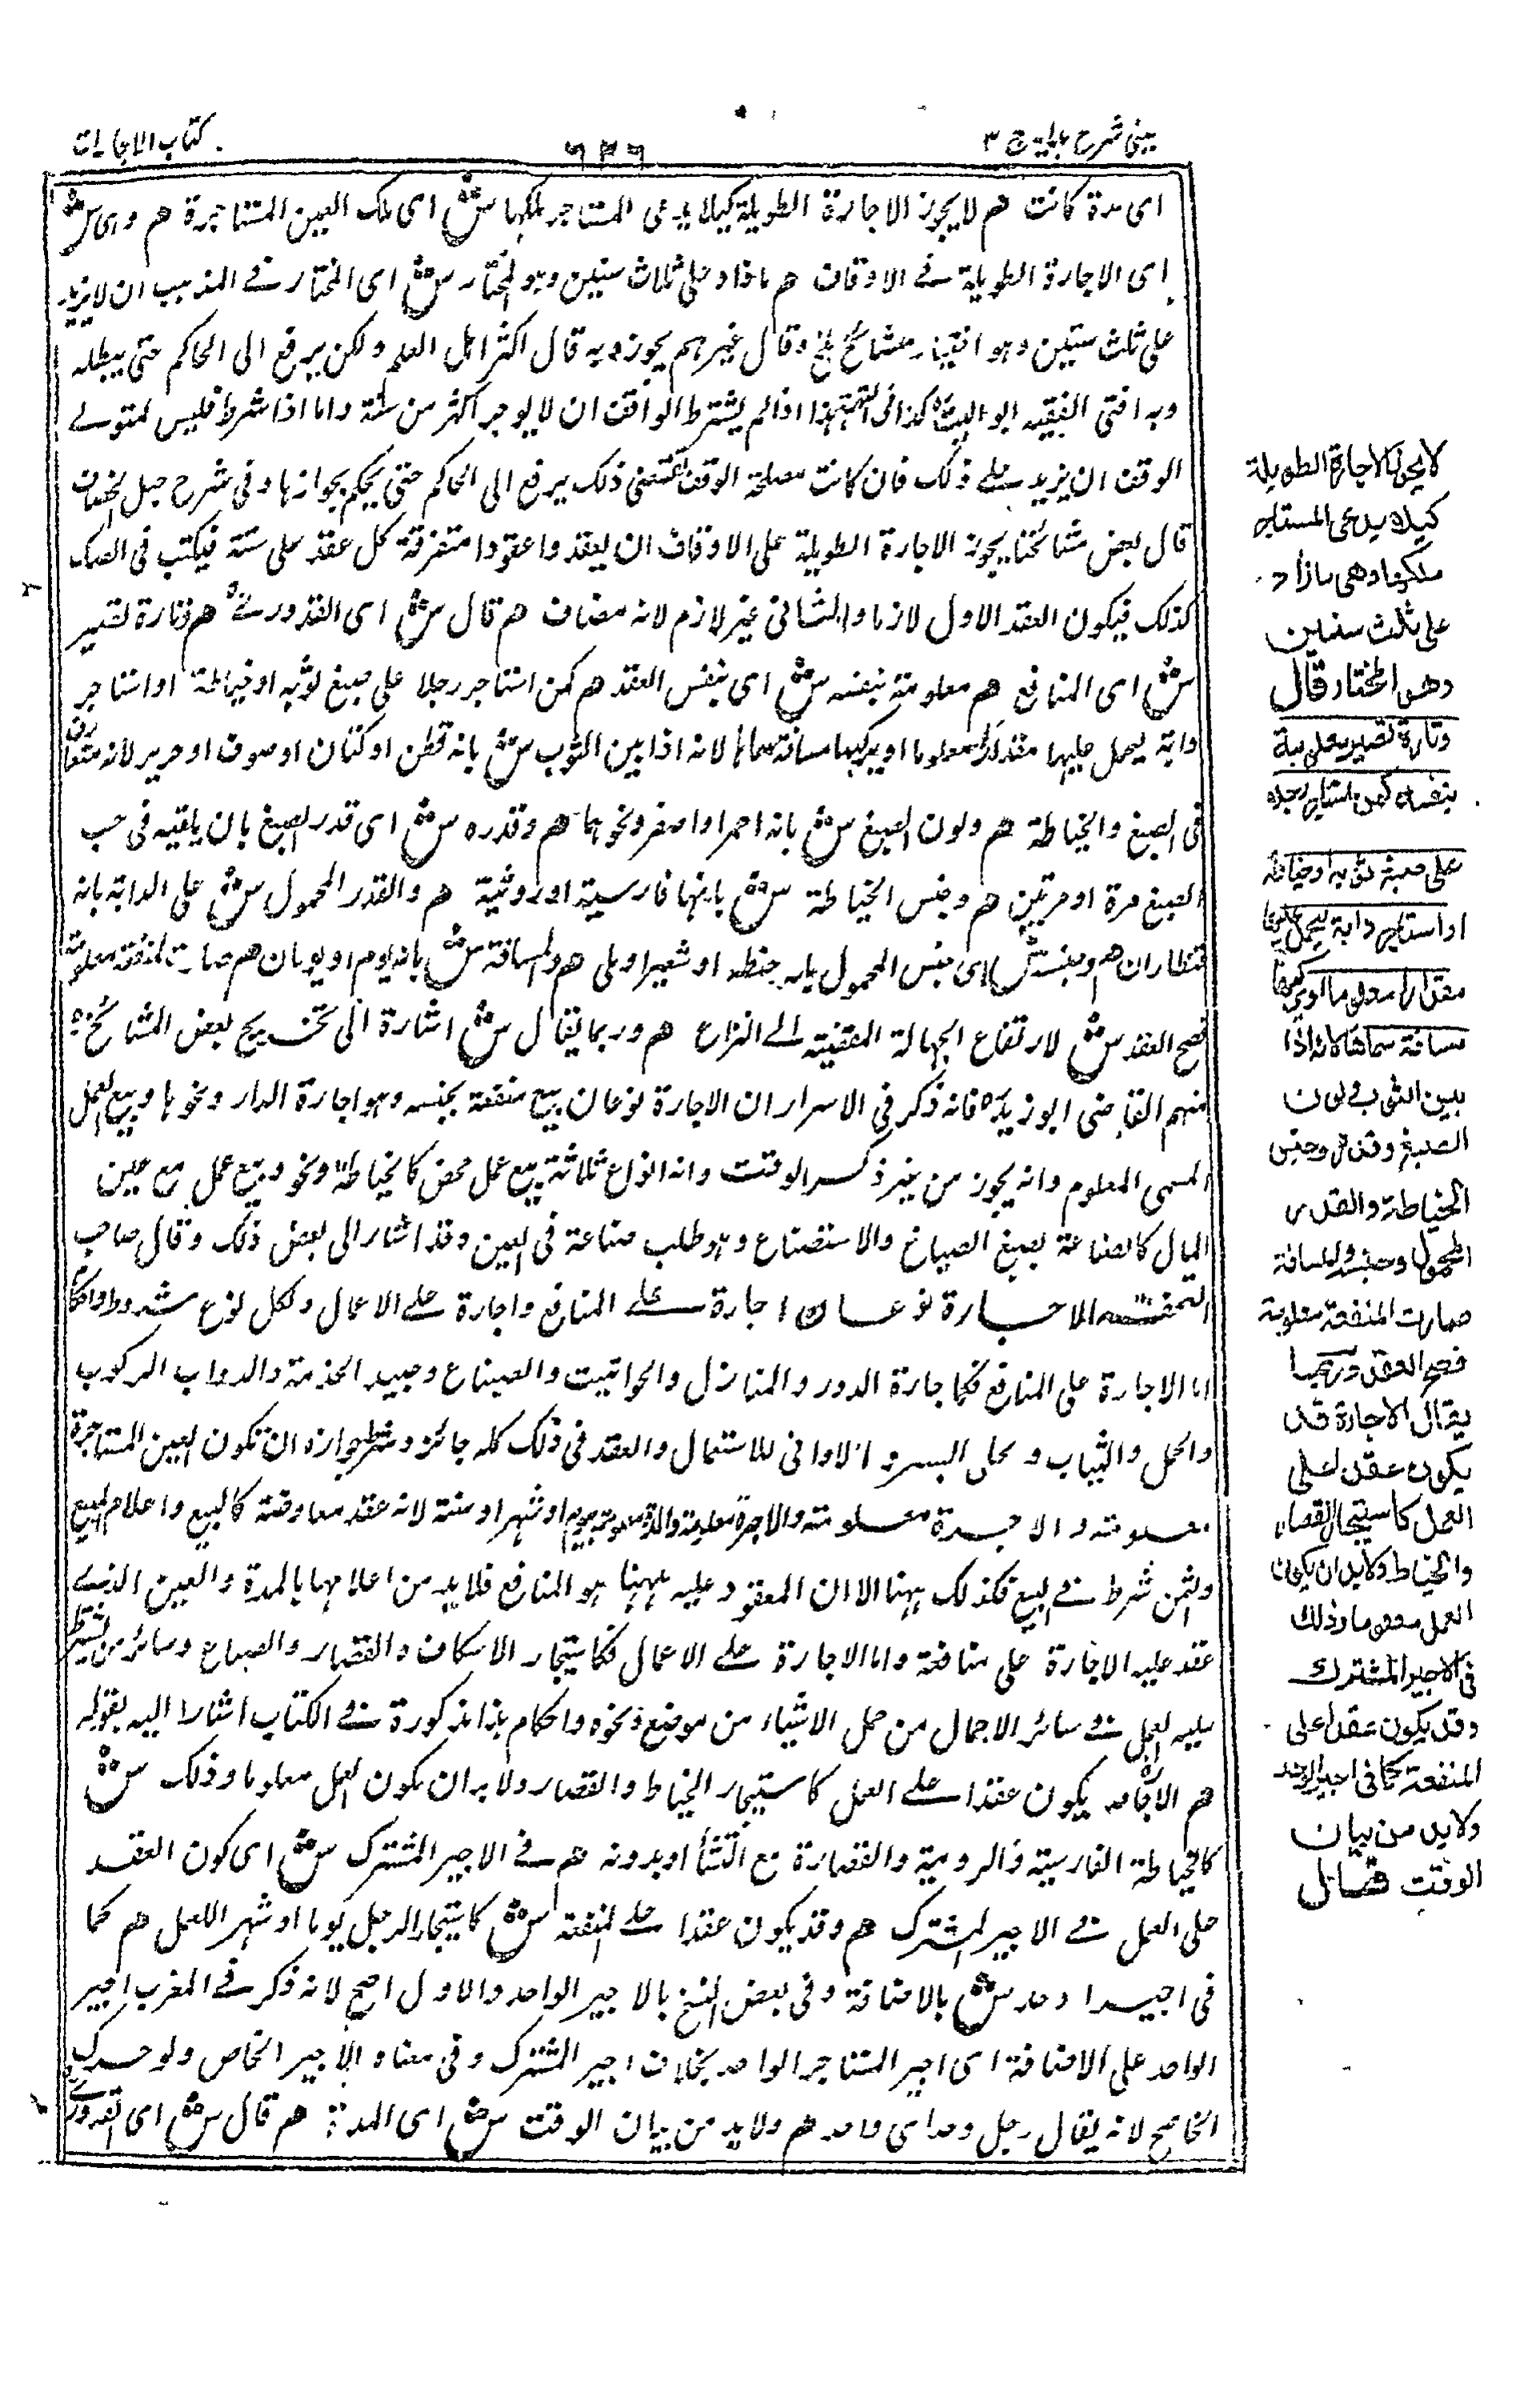 عینی شرح ہدایہ ج ۳
۶۳۶
کتاب الاجارات
ای مدة کانت هم لا یجوز الاجارة الطویلة کیلا یدعی المستاجر ملکها ش ای ملک العین المستاجرة هم وهی ش
ای الاجارة الطویلة فی الاوقاف هم ما زاد علی ثلاث سنین وهو المختار ش ای المختار فی المذهب ان لا یزید
علی ثلث سنین وهو اختیار مشائخ بلخ وقال غیرهم یجوز وبه قال اکثر اهل العلم ولکن یرفع الی الحاکم حتی یبطله
وبه افتی الفقیه ابو اللیث کذا فی التتمة هذا اذا لم یشترط الواقف ان لا یوجر اکثر من سنة واما اذا شرط فلیس لمتولی
الوقف ان یزید علی ذلک فان کانت مصلحة الوقف تقتضی ذلک یرفع الی الحاکم حتی یحکم بجوازها وفی شرح حیل الخصاف
قال بعض مشائخنا یجوز الاجارة الطویلة علی الاوقاف ان یعقدوا عقودا متفرقة کل عقد علی سنة فیکتب فی الصک
کذلک فیکون العقد الاول لازما والثانی غیر لازم لانه مضاف هم قال ش ای القدوری هم وتارة تصیر
ش ای المنافع هم معلومة بنفسه ش ای بنفس العقد هم کمن استاجر رجلا علی صبغ ثوبه او خیاطة او استاجر
دابة لیحمل علیها مقدارا معلوما او یرکبها مسافة سماها لانه اذا بین الثوب ش بانه قطن او کتان او صوف او حریر لانه متفاوت
فی الصبغ والخیاطة هم ولون الصبغ ش بانه احمر او اصفر ونحوهما هم وقدره ش ای قدر الصبغ بان یلقیه فی حب
الصبغ مرة او مرتین هم وجنس الخیاطة ش بانها فارسیة او رومیة هم والقدر المحمول ش علی الدابة بانه
قنطاران هم وجنسه ش ای جنس المحمول بانه حنطة او شعیر او ملح هم والمسافة ش بانه یوم او یومان هم صارت المنفعة معلومة
فصح العقد ش لارتفاع الجهالة المفضیة الی النزاع هم وربما یقال ش اشارة الی تخریج بعض المشائخ
منهم القاضی ابو زید فانه ذکر فی الاسرار ان الاجارة نوعان بیع منفعة بجنسه وهو اجارة الدار ونحوها وبیع العمل
المسمی المعلوم وانه یجوز من غیر ذکر الوقت وانه انواع ثلاثة بیع عمل محض کالخیاطة ونحو وبیع عمل مع عین
المال کالصناعة بصبغ الصباغ والاستصناع وهو طلب صناعة فی العین وقد اشار الی بعض ذلک وقال صاحب
التحفة الاجارة نوعان اجارة علی المنافع واجارة علی الاعمال ولکل نوع شروط واحکام
اما الاجارة علی المنافع فکاجارة الدور والمنازل والحوانیت والضیاع وعبید الخدمة والدواب الرکوب
والحمل والثیاب وحلی اللبس والاوانی للاستعمال والعقد فی ذلک کله جائز وشرط جوازه ان تکون العین المستاجرة
معلومة والاجرة معلومة والاجرة معلومة والمدة معلومة بیوم او شهر او سنة لانه عقد معاوضة کالبیع واعلام المبیع
والثمن شرط فی البیع فکذلک ههنا الا ان المعقود علیه ههنا هو المنافع فلا بد من اعلامها بالمدة والعین الذی
عقد علیه الاجارة علی منافعه واما الاجارة علی الاعمال فکاستیجار الاسکاف والقصار والصباغ وسائر من یشترط
علیه العمل فی سائر الاعمال من حمل الاشیاء من موضع ونحوه واحکام هذا مذکورة فی الکتاب اشار الیه بقوله
هم الاجارة یکون عقدا علی العمل کاستیجار الخیاط والقصار ولا بد ان یکون العمل معلوما وذلک ش
کالخیاطة الفارسیة والرومیة والقصارة مع النشا او بدونه هم فی الاجیر المشترک ش ای کون العقد
علی العمل فی الاجیر المشترک هم وقد یکون عقدا علی المنفعة ش کاستیجار الرجل یوما او شهرا للعمل هم کما
فی اجیر وحد ش بالاضافة وفی بعض النسخ بالاجیر الواحد والاول اصح لانه ذکر فی المغرب اجیر
الواحد علی الاضافة ای اجیر المستاجر الواحد بخلاف اجیر المشترک وفی معناه الاجیر الخاص ولو حرک
الحا صح لانه یقال رجل وحد ای واحد هم ولا بد من بیان الوقت ش ای المدة هم قال ش ای القدوری
لا یجوز الاجارة الطویلة
کیلا یدعی المستاجر
ملکها وهی ما زاد
علی ثلث سنین
وهو المختار قال
وتارة تصیر معلومة
بنفسه کمن استاجر رجلا
علی صبغ ثوبه او خیاطة
او استاجر دابة لیحمل علیها
مقدارا معلوما او یرکبها
مسافة سماها لانه اذا
بین الثوب ولون
الصبغ وقدره وجنس
الخیاطة والقدر
المحمول وجنسه والمسافة
صارت المنفعة معلومة
فصح العقد وربما
یقال الاجارة قد
یکون عقدا علی
العمل کاستیجار القصار
والخیاط ولابد ان یکون
العمل معلوما وذلک
فی الاجیر المشترک
وقد یکون عقدا علی
المنفعة کما فی اجیر الوحد
ولابد من بیان
الوقت قال